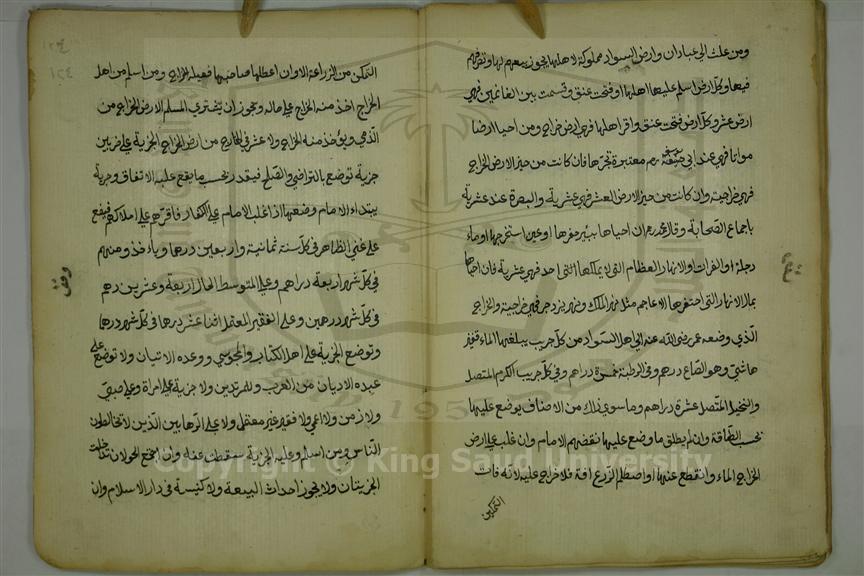 ومن علث الي عبادان وارض السواد مملوكة لاهلها يجوز بيعهم لها وتصرفهم
فيها وكل ارض اسلم عليها اهلها او فتحت عنق وقسمت بين الغانمين فهي
ارض عشر وكل ارض فتحت عنق واقر اهلها فهي ارض خراج ومن احيا ارضا
مواتا فهي عند ابي يوسف رحم معتبرة بحيزها فان كانت من حيز الارض الخراج
فهي خراجية وان كانت من حيز الارض العشر فهي عشرية والبصرة عند عشرية
باجماع الصحابة وقال محمد رحم ان احياها ببير حفرها او عين استخرجها او ماء
دجلة او الفرات والانهار العظام التي لا يملكها احد فهي عشرية فان احياها
بماء الانهار التي احتفرها الاعاجم مثل نهر الملك ونهر يزدجر فهي خراجية والخراج
الذي وضعه عمر رضي الله عنه الي اهل السواد من كل جريب يبلغها الماء قفيز
هاشمي وهو الصاع درهم وفي الرطبة خمسة دراهم وفي كل جريب الكرم المتصل
والنخيل المتصل عشرة دراهم وما سوي ذلك من الاصناف يوضع عليها
بحسب الطاقة وان لم يطق ما وضع عليها نقضهم الامام وان غلب علي ارض
الخراج الماء وانقطع عنها او اصطلم الزرع افة فلا خراج عليه لانه فات
التمكن
التمكن من الزراعة الا وان اعطلها صاحبها فعيله الخراج ومن اسلم من اهل
الخراج اخذ منه الخراج علي حاله ويجوز ان يشتري المسلم الارض الخراج من
الذمي ويؤخذ منه الخراج ولا عشر في الخارج من ارض الخراج الجزية علي ضربين
جزية توضع بالتراضي والصلح فيقدر بحسب ما يقع عليه الاتفاق وجزية
يبتداء الامام وضعها اذا غلب الامام علي الكفار فاقرهم علي املاكهم فيضع
علي غني الظاهر في كل سنة ثمانية واربعين درهما وياءخذ ومنهم
في كل شهر اربعة دراهم وعلي المتوسط الحال اربعة وعشرين درهم
في كل شهر درهمين وعلي الفقير المعتمل اثنا عشر درهما في كل شهر درهما
وتوضع الجزية علي اهل الكتاب والمجوسي ووعده الاتيان ولا توضع علي
عبده الاديان من العرب وللمرتدين ولا جزية علي امراة وعلي صبي
ولا زمن ولا اعمي ولا فقير غير معتمل ولا علي الرهابين الذين لا تخالطون
الناس ومن اسلم وعليه الجزية سقطت عنه وان اجتمع الحولان تداخلت
الجزيتان ولا يجوز احداث البيعة ولا كنيسة في دار الاسلام وان
وقف
Copyright © King Saud University
1957